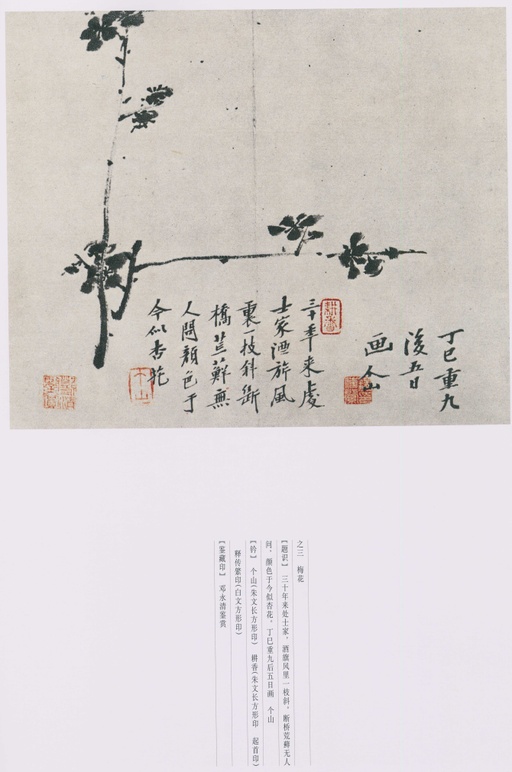 丁巳重九
後五日
画 个山
三十年来處
士家酒旂風
裏一枝斜断
橋荒蘚無
人問顔色于
今似杏花
耕香
个山
之三 梅花
【题识】 三十年来处士家，酒旗风里一枝斜，断桥荒藓无人
问，颜色于今似杏花。丁巳重九后五日画 个山
【钤】 个山(朱文长方形印) 耕香(朱文长方形印 起首印)
释传綮印(白文方形印)
【鉴藏印】 邓永清鉴赏